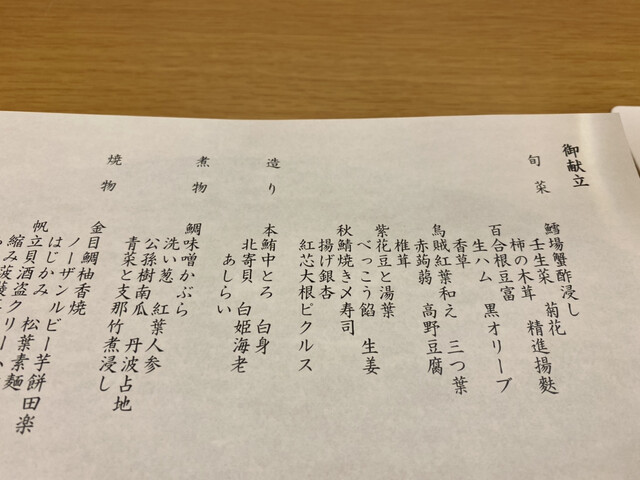 御献立
旬菜
鱈場蟹酢浸し
壬生菜 菊花
柿の木茸 精進揚麩
百合根豆富
生ハム 黒オリーブ
香草
烏賊紅葉和え 三つ葉
赤蒟蒻 高野豆腐
椎茸
紫花豆と湯葉
べっこう餡 生姜
秋鯖焼き〆寿司
揚げ銀杏
紅芯大根ピクルス
造り
本鮪中とろ 白身
北寄貝 白姫海老
あしらい
煮物
鯛味噌かぶら
洗い葱 紅葉人参
公孫樹南瓜 丹波占地
青菜と支那竹煮浸し
焼物
金目鯛柚香焼
ノーザンルビー芋餅田楽
はじかみ 松葉素麺
帆立貝酒盗クリーム
縮み菠薐